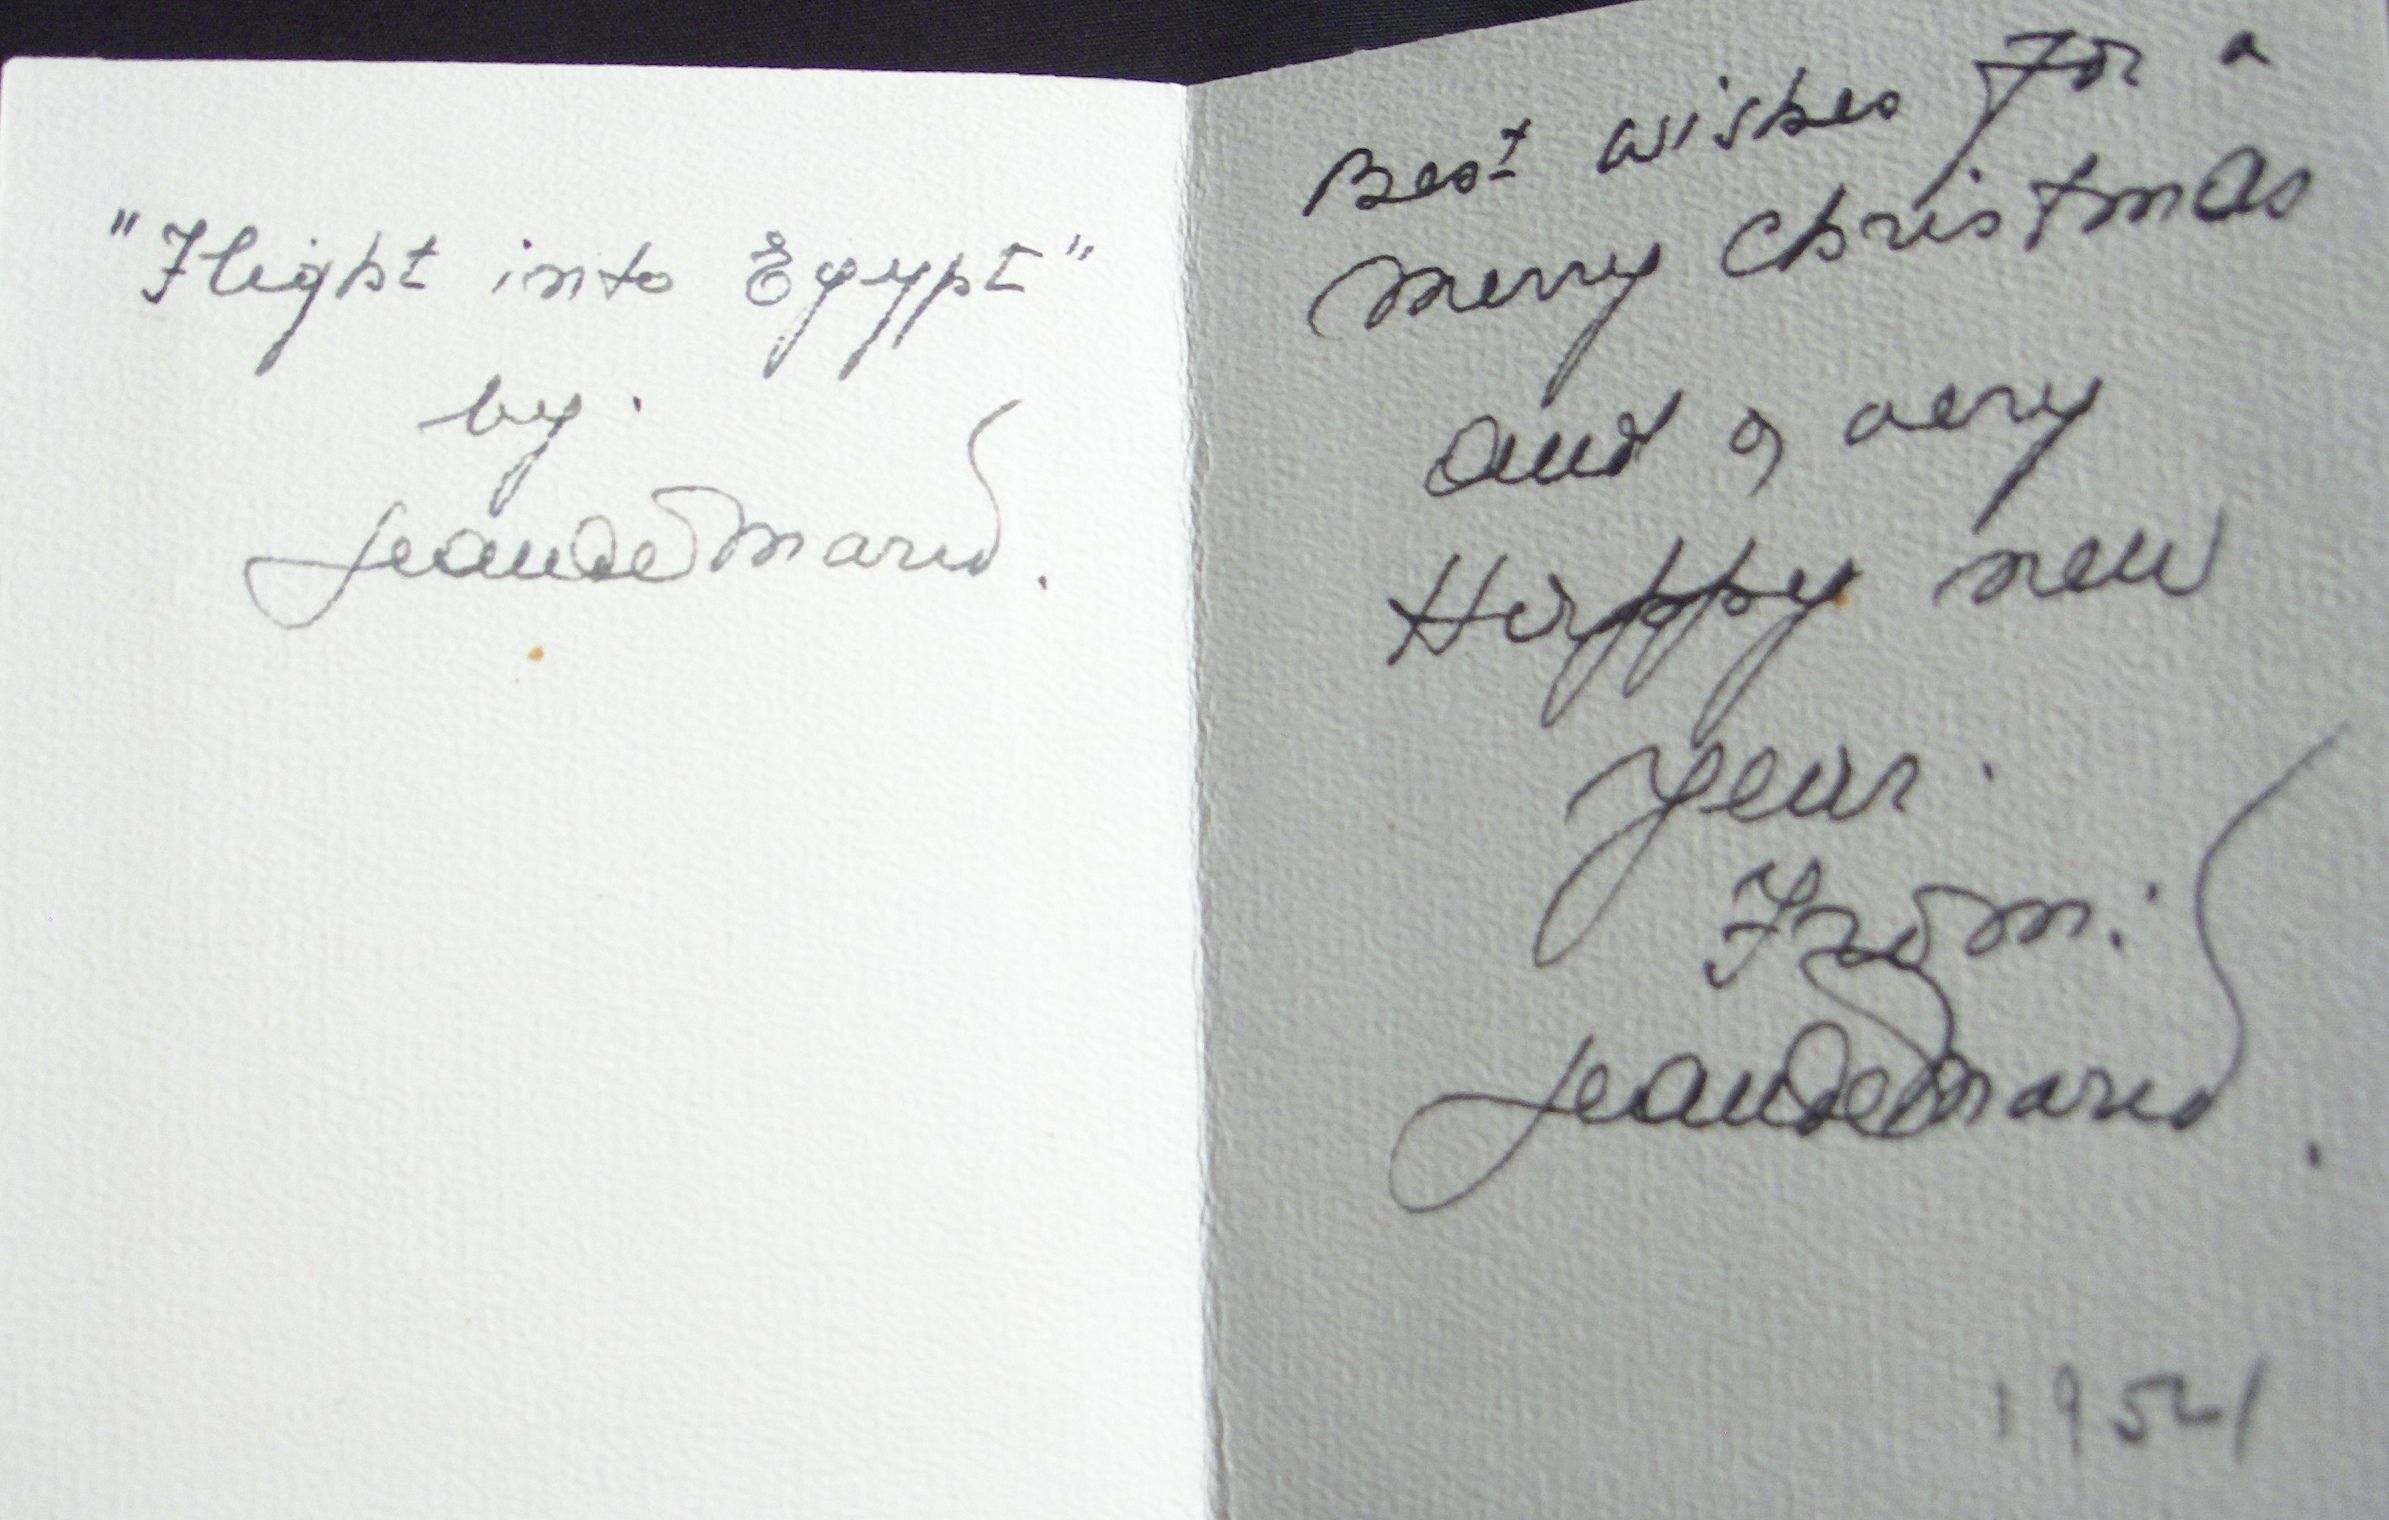 "Flight into Egypt"
by.
Jean de Marco.
Best wishes For a
Merry Christmas
and a very
Happy new
year.
From:
Jean de Marco.
1954